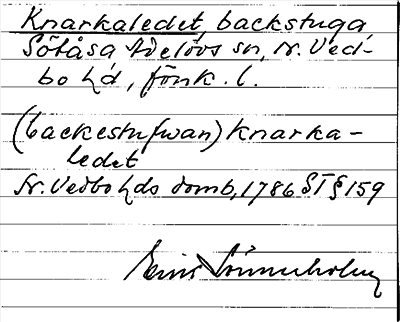 Knarkaledet, backstuga,
Sötåsa Adelövs sn, N. Ved-
bo hd, Jönk. l.
(backestufwan) Knarka-
ledet
N. Vedbo hds domb, 1786 ST § 159